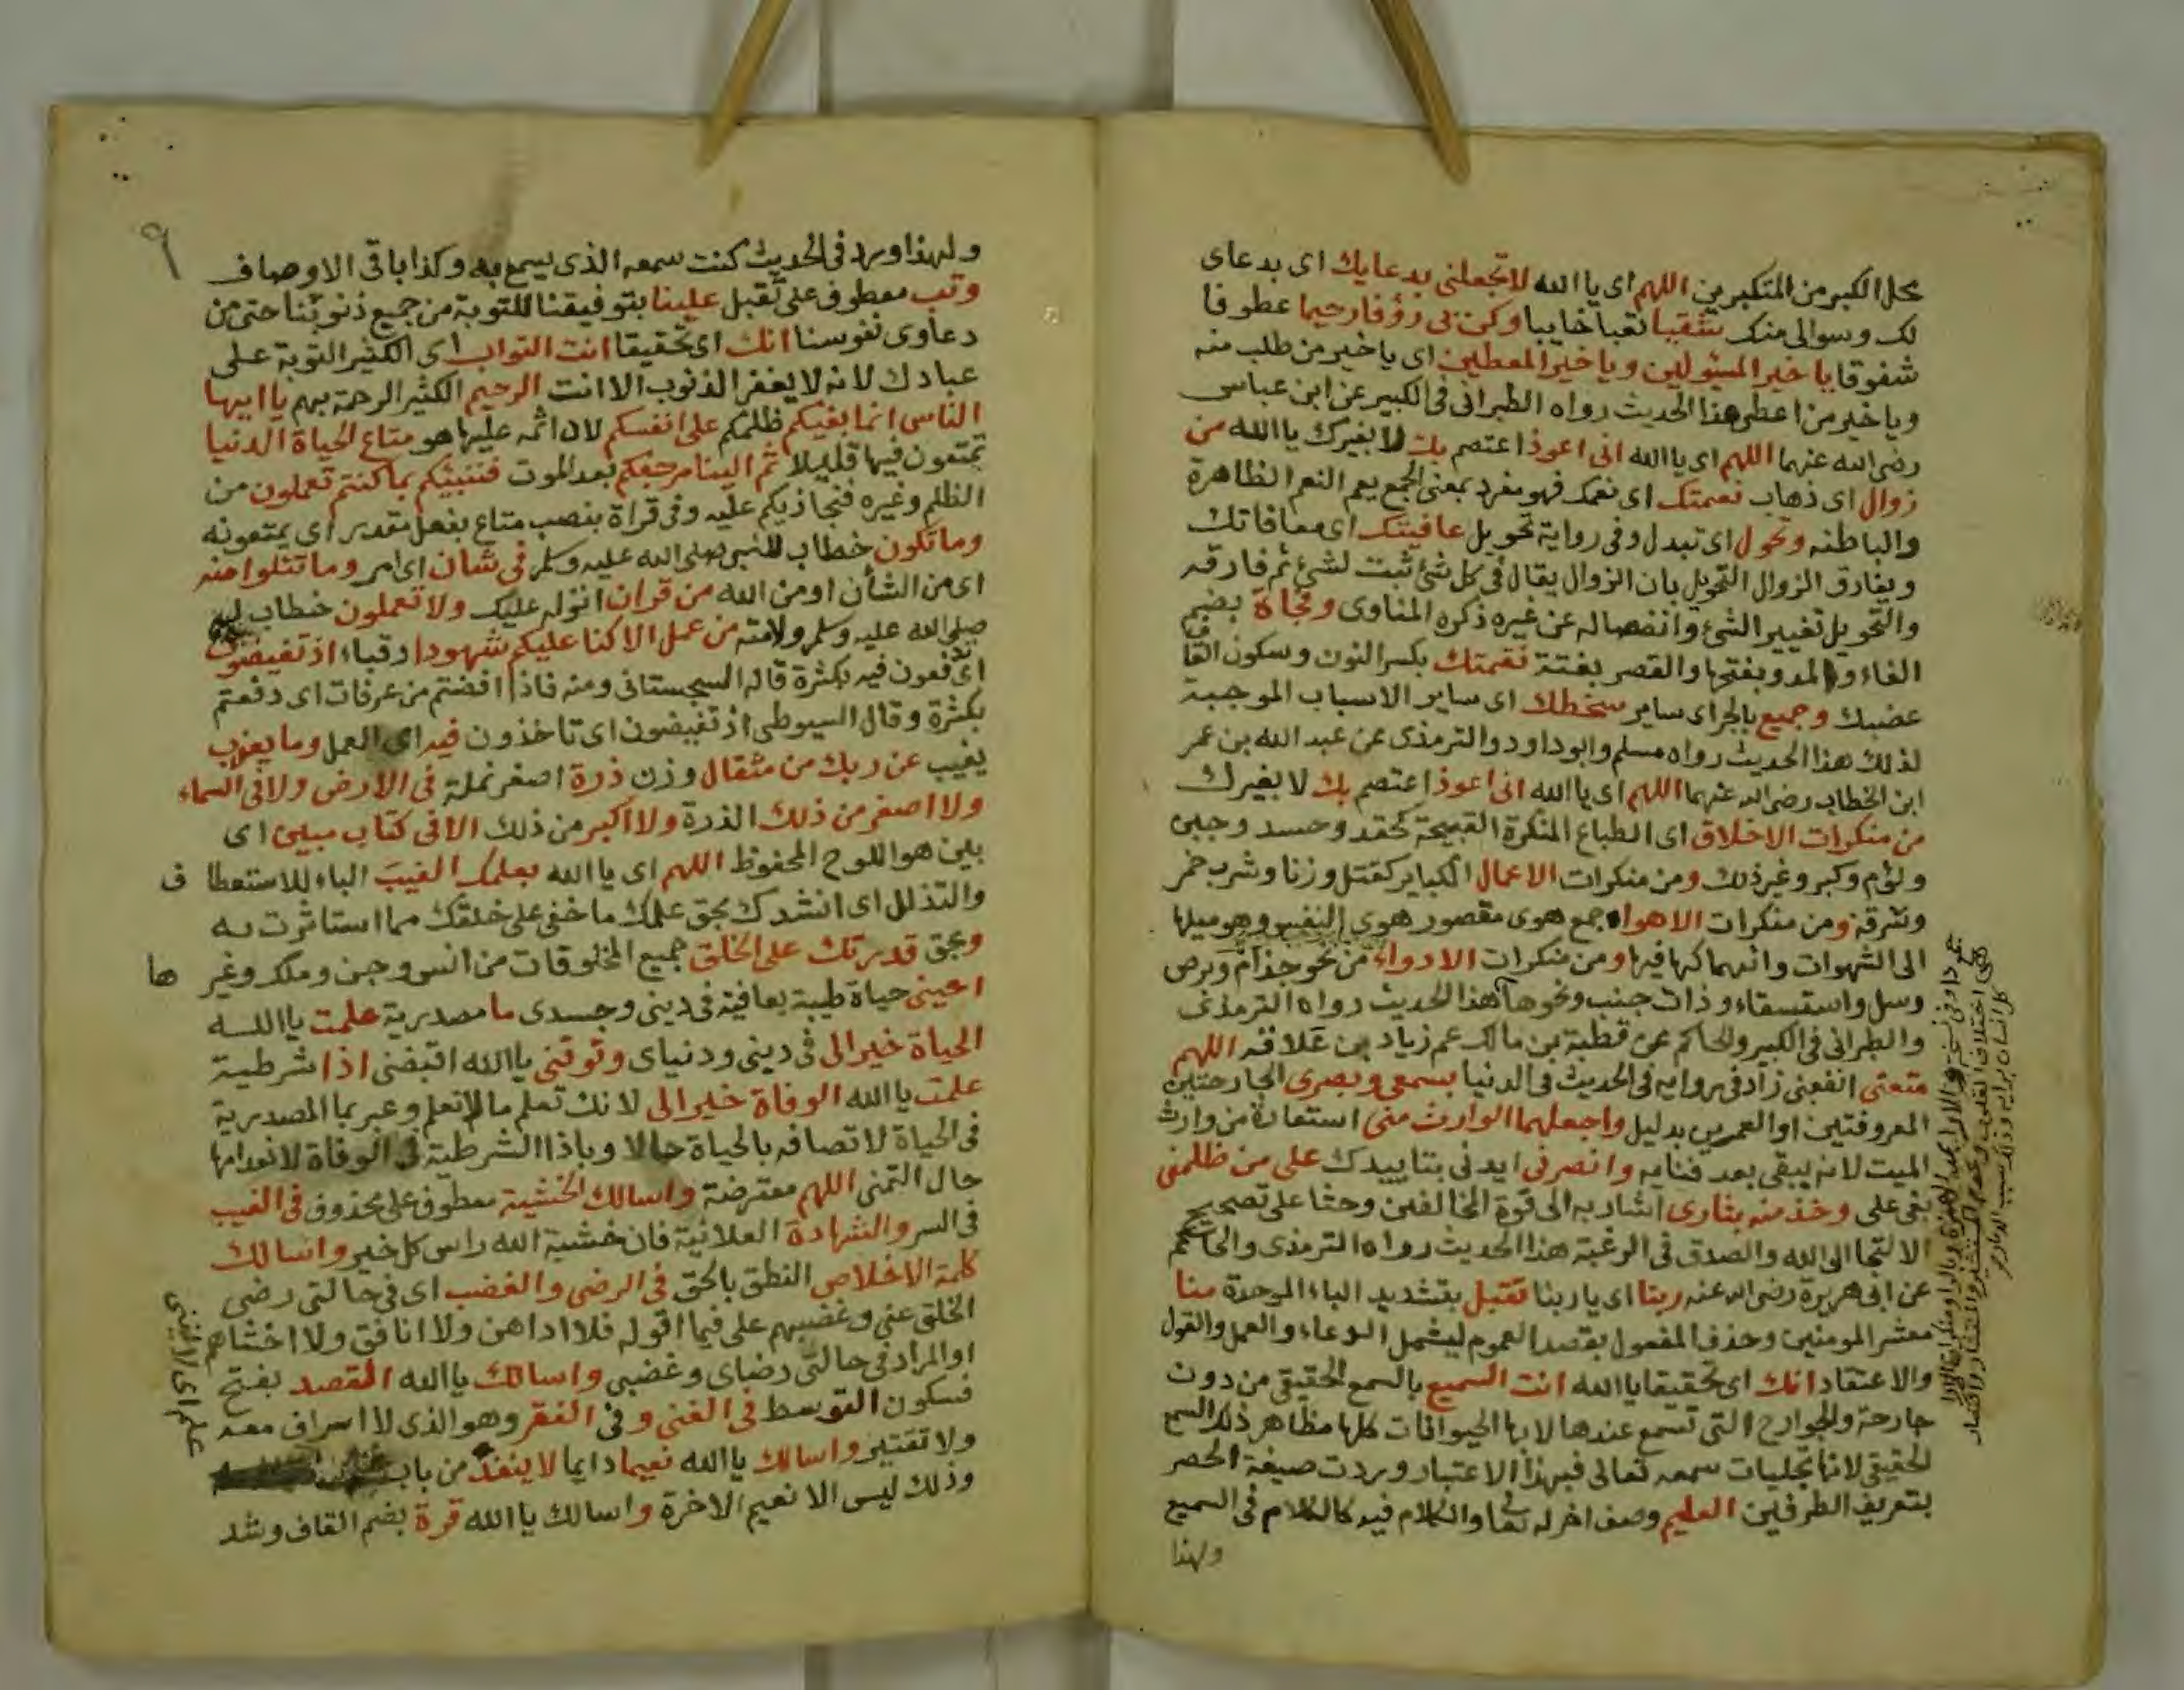 محل الكبر من المتكبرين اللهم اى يا الله لا تجعلنى بدعايك اى بدعاى
لك وسوالى منك شقيا تعبا خايبا وكن بى رؤفا رحيما عطوفا
شفوقا يا خير المسئولين ويا خير المعطين اى يا خير من طلب منه
ويا خير من اعطى هذا الحديث رواه الطبرانى فى الكبير عن ابن عباس
رضى الله عنهما اللهم اى يا الله انى اعوذ اعتصم بك لا بغيرك يا الله من
زوال اى ذهاب نعمتك اى نعمك فهو مفرد بمعنى الجمع يعم النعم الظاهرة
والباطنه وتحول اى تبدل وفى رواية تحويل عافيتك اى معافاتك
ويفارق الزوال التحويل بان الزوال يقال فى كل شئ ثبت لشئ ثم فارقه
والتحويل تغيير الشئ وانفصاله عن غيره ذكره المناوى وفجاة بضم
الفاء والمد وبفتحها والقصر بغتة نقمتك بكسر النون وسكون القاف
غضبك وجميع بالجر اى ساير سخطك اى ساير الاسباب الموجبة
لذلك هذا الحديث رواه مسلم وابو داود والترمذى عن عبد الله بن عمر
ابن الخطاب رضى الله عنهما اللهم اى يا الله انى اعوذ اعتصم بك لا بغيرك
من منكرات الاخلاق اى الطباع المنكرة القبيحة كحقد وحسد وجبن
ولؤم وكبر وغير ذلك ومن منكرات الاعمال الكباير كقتل وزنا وشرب خمر
وسرقة ومن منكرات الاهواء جمع هوى مقصور هوى النفس وهو ميلها
الى الشهوات وانهماكها فيها ومن منكرات الادواء من نحو جذام وبرص
وسل واستسقاء وذات جنب ونحوها هذا الحديث رواه الترمذى
والطبرانى فى الكبير والحاكم عن قطبة بن مالك عم زياد بن علاقه اللهم
متعنى انفعنى زاد فى رواية فى الحديث فى الدنيا بسمعى وبصرى الجارحتين
المعروفتين او العمرين بدليل واجعلهما الوارث منى استعارة من وارث
الميت لانه يبقى بعد فنايه وانصرنى ايدنى بتاييدك على من ظلمنى
بغى على وخذ منه بثارى اشار به الى قوة المخالفين وحثا على تصحيح
الالتجا الى الله والصدق فى الرغبة هذا الحديث رواه الترمذى والحاكم
عن ابى هريرة رضى الله عنه ربنا اى يا ربنا تقبل بتشديد الباء الموحدة منا
معشر المومنين وحذف المفعول بقصد العموم ليشمل الدعاء والعمل والقول
والاعتقاد انك اى تحقيقا يا الله انت السميع بالسمع الحقيقى من دون
جارحة والجوارح التى تسمع عندها لا بها الحيوانات كلها مظاهر ذلك السمع
الحقيقى لانها تجليات سمعه تعالى فبهذا الاعتبار وردت صيغة الحصر
بتعريف الطرفين العليم وصف اخر له تعا والكلام فيه كالكلام فى السميع
ولهذا
٩
ولهذا ورد فى الحديث كنت سمعه الذى يسمع به وكذا باقى الاوصاف
وتب معطوف على تقبل علينا بتوفيقنا للتوبة من جميع ذنوبنا حتى من
دعاوى نفوسنا انك اى تحقيقا انت التواب اى الكثير التوبة على
عبادك لانه لا يغفر الذنوب الا انت الرحيم الكثير الرحمة بهم يا ايها
الناس انما بغيكم ظلمكم على انفسكم لان اثمه عليها هو متاع الحياة الدنيا
تمتعون فيها قليلا ثم الينا مرجعكم بعد الموت فننبئكم بما كنتم تعملون من
الظلم وغيره فنجازيكم عليه وفى قراة بنصب متاع بفعل مقدر اى يمتعونه
وما تكون خطاب للنبى صلى الله عليه وسلم فى شان اى امر وما تتلوا منه
اى من الشأن او من الله من قران انزله عليك ولا تعملون خطاب له
صلى الله عليه وسلم ولامته من عمل الا كنا عليكم شهودا رقباء اذ تفيضون
اى تدفعون فيه بكثرة قاله السجستانى ومنه فاذا افضتم من عرفات اى دفعتم
بكثرة وقال السيوطى اذ تفيضون اى تاخذون فيه اى العمل وما يعزب
يغيب عن ربك من مثقال وزن ذرة اصغر نملة فى الارض ولا فى السماء
ولا اصغر من ذلك الذرة ولا اكبر من ذلك الا فى كتاب مبين اى
بين هو اللوح المحفوظ اللهم اى يا الله بعلمك الغيب الباء للاستعطاف
والتذلل اى انشدك بحق علمك ما خفى على خلقك مما استاثرت به
وبحق قدرتك على الخلق جميع المخلوقات من انس وجن وملك وغيرها
احينى حياة طيبة بعافية فى دينى وجسدى ما مصدرية علمت يا الله
الحياة خيرا لى فى دينى ودنياى وتوفنى يا الله اقبضنى اذا شرطية
علمت يا الله الوفاة خيرا لى لانك تعلم ما لا نعلم وعبر بما المصدرية
فى الحياة لاتصافه بالحياة حالا وباذا الشرطية فى الوفاة لانعدامها
حال التمنى اللهم معترضة واسالك الخشية معطوف على محذوف فى الغيب
فى السر والشهادة العلانية فان خشية الله راس كل خير واسالك
كلمة الاخلاص النطق بالحق فى الرضى والغضب اى فى حالتى رضى
الخلق عنى وغضبهم على فيما اقوله فلا اداهن ولا انافق ولا اخشاهم
او المراد فى حالتى رضاى وغضبى واسالك يا الله القصد بفتح
فسكون التوسط فى الغنى وفى الفقر وهو الذى لا اسراف معه
ولا تقتير واسالك يا الله نعيما دايما لا ينفد من باب
وذلك ليس الا نعيم الاخرة واسالك يا الله قرة بضم القاف وشد